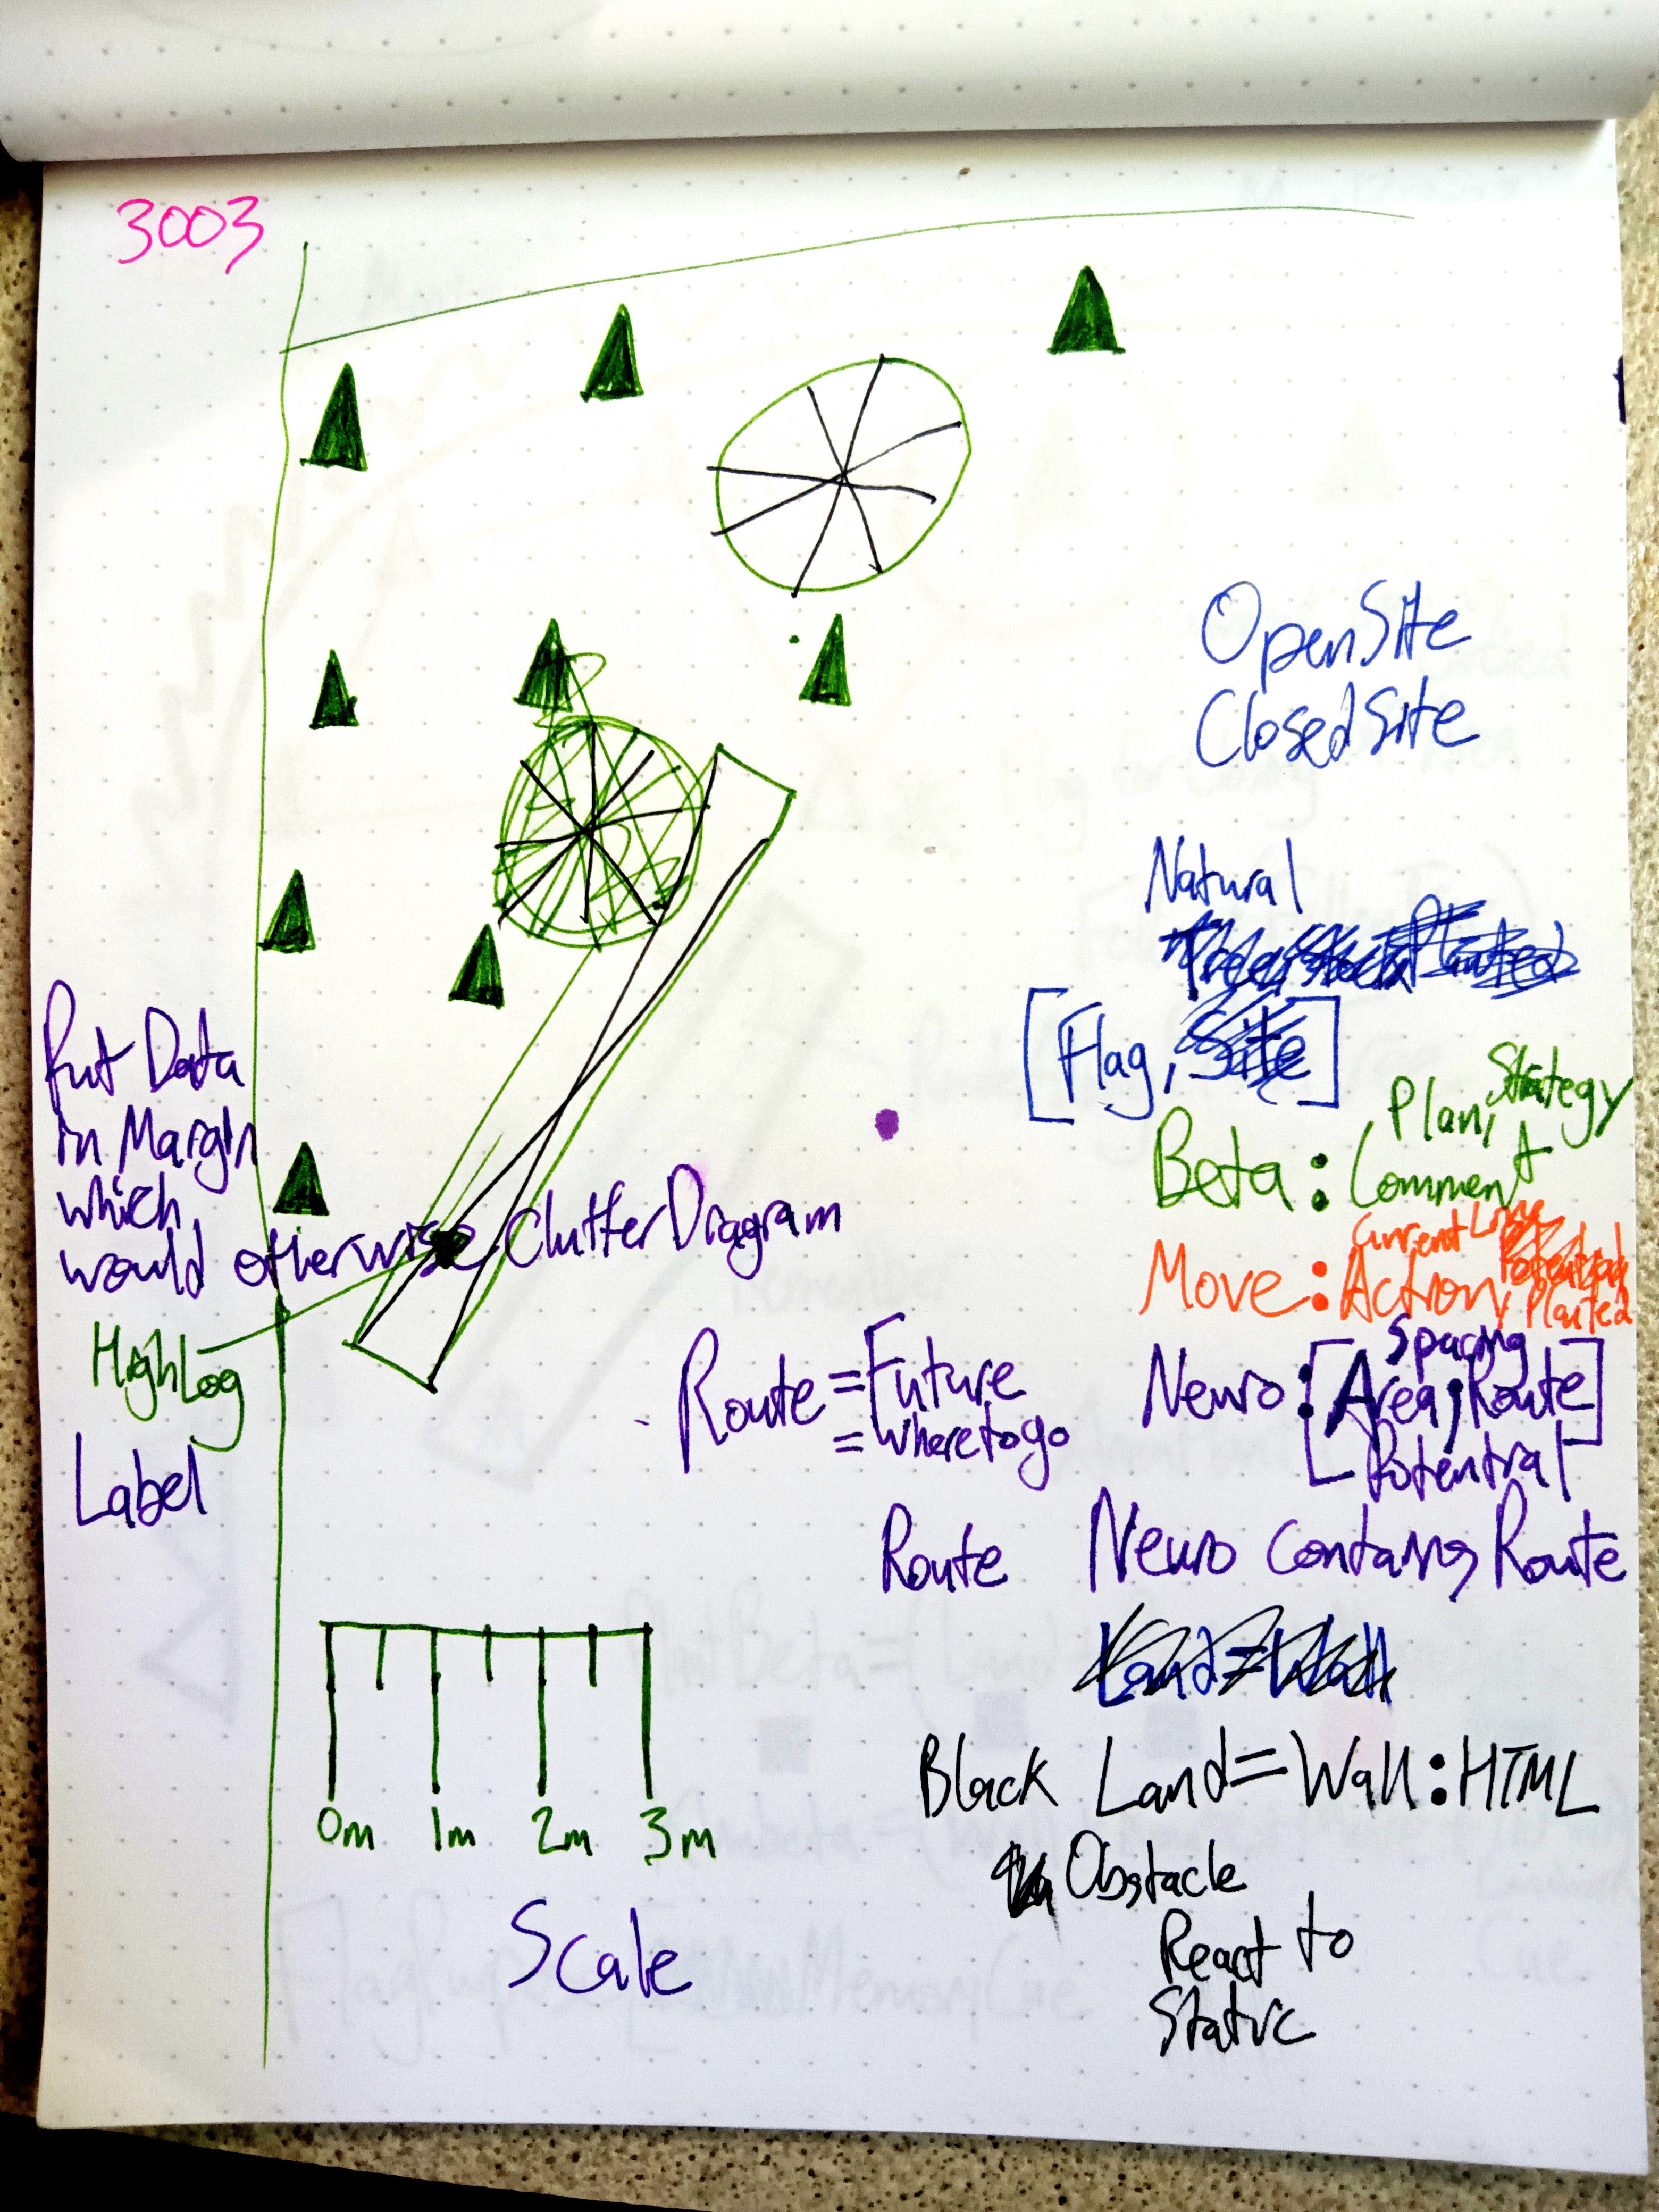 3003
OpenSite
ClosedSite
Natural
[Flag, Site]
Plan, Strategy
Beta : Comment
Current Line
Move : Action, Planted
Put Data
in Margin
which
would otherwise Clutter Diagram
High Log
Label
Route = Future
= Where to go
Spacing
Neuro : [Area, Route]
Potential
Route Neuro Contains Route
Land = Wall
Black Land = Wall : HTML
Obstacle
React to
Static
0m 1m 2m 3m
Scale